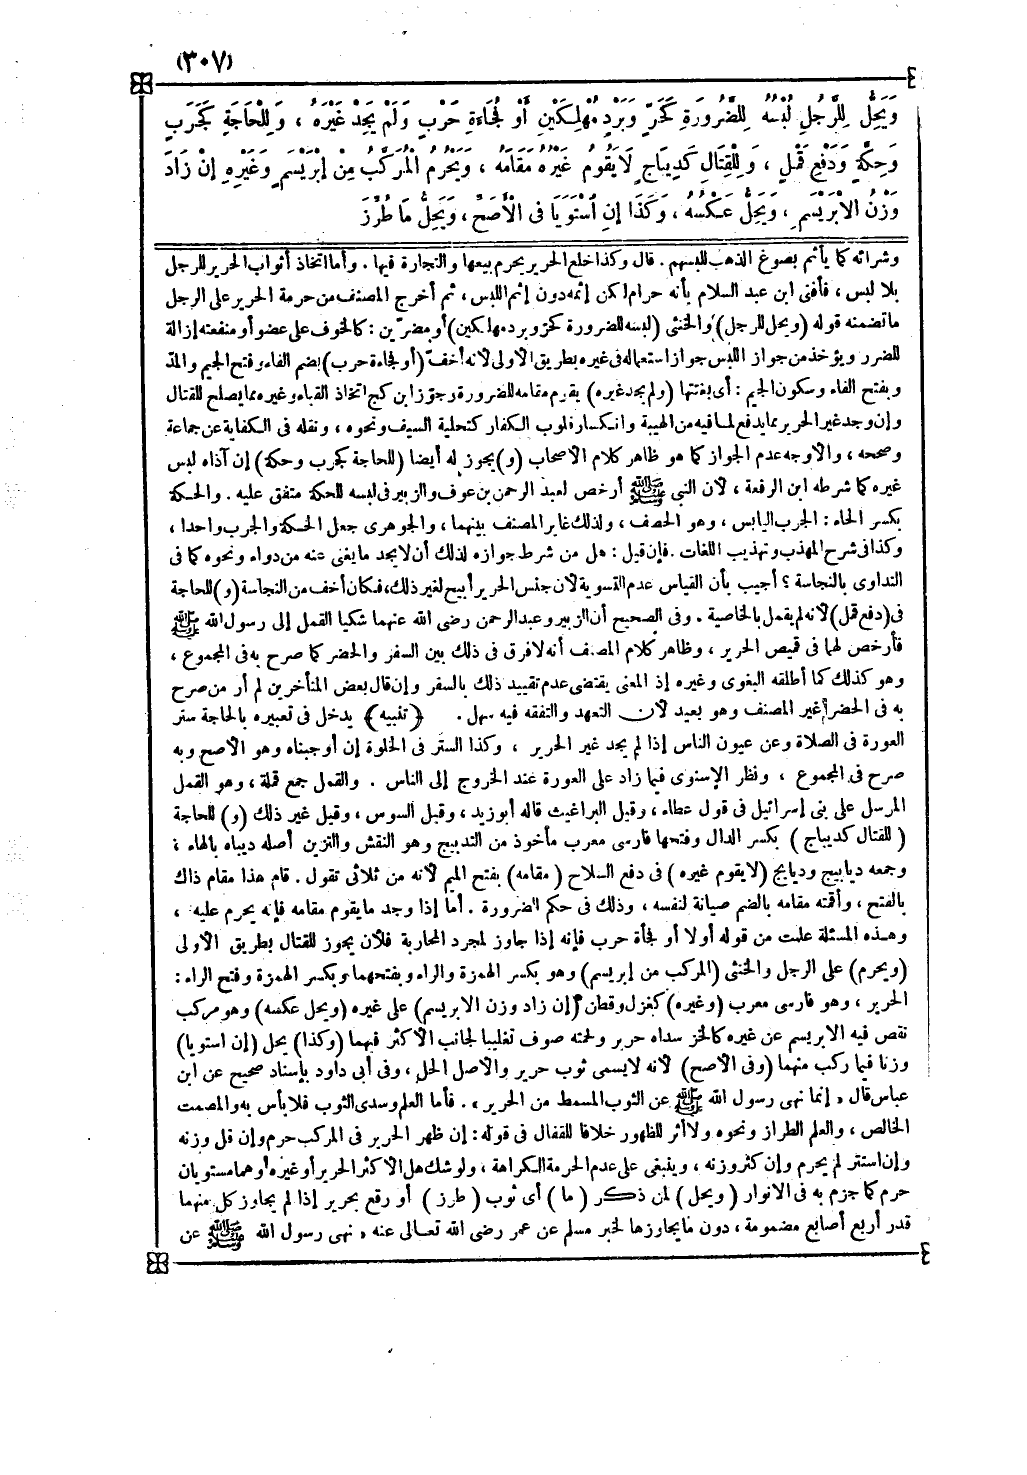 (٣٠٧)
وَيَحِلُّ لِلرَّجُلِ لُبْسُهُ لِلضَّرُورَةِ كَحَرٍّ وَبَرْدٍ مُهْلِكَيْنِ أَوْ فُجَاءَةِ حَرْبٍ وَلَمْ يَجِدْ غَيْرَهُ ، وَلِلْحَاجَةِ كَجَرَبٍ
وَحِكَّةٍ وَدَفْعِ قَمْلٍ ، وَلِلْقِتَالِ كَدِيبَاجٍ لَا يَقُومُ غَيْرُهُ مَقَامَهُ ، وَيَحْرُمُ الْمُرَكَّبُ مِنْ إبْرَيْسَمٍ وَغَيْرِهِ إنْ زَادَ
وَزْنُ الإِبْرَيْسَمِ ، وَيَحِلُّ عَكْسُهُ ، وَكَذَا إنِ اسْتَوَيَا فى الْأَصَحِّ ، وَيَحِلُّ مَا طُرِّزَ
وشرائه كما يأثم بصوغ الذهب للبسهم . قال وكذا خلع الحرير يحرم بيعها والتجارة فيها . وأما اتخاذ أثواب الحرير للرجل
بلا لبس ، فأفتى ابن عبد السلام بأنه حرام لكن إثمه دون إثم اللبس ، ثم أخرج المصنف من حرمة الحرير على الرجل
ما تضمنه قوله (ويحل للرجل) والخنثى (لبسه للضرورة كحر وبرد مهلكين) أو مضرّين : كالخوف على عضو أو منفعته إزالة
للضرر ويؤخذ من جواز اللبس جواز استعماله فى غيره بطريق الأولى لأنه أخفّ (أو فجاءة حرب) بضم الفاء وفتح الجيم والمدّ
وبفتح الفاء وسكون الجيم : أى بغتتها (ولم يجد غيره) يقوم مقامه للضرورة وجوّز ابن كج اتخاذ القباء وغيره مما يصلح للقتال
وإن وجد غير الحرير مما يدفع لما فيه من الهيبة وانكسار قلوب الكفار كتحلية السيف ونحوه ، ونقله فى الكفاية عن جماعة
وصححه ، والأوجه عدم الجواز كما هو ظاهر كلام الأصحاب (و) يجوز له أيضا (للحاجة كجرب وحكة) إن آذاه لبس
غيره كما شرطه ابن الرفعة ، لأن النبي ﷺ أرخص لعبد الرحمن بن عوف والزبير فى لبسه للحكة متفق عليه . والحكة
بكسر الحاء : الجرب اليابس ، وهو الحصف ، ولذلك غاير المصنف بينهما ، والجوهرى جعل الحكة والجرب واحدا ،
وكذا فى شرح المهذب وتهذيب اللغات . فإن قيل : هل من شرط جوازه لذلك أن لا يجد ما يغنى عنه من دواء ونحوه كما فى
التداوى بالنجاسة ؟ أجيب بأن القياس عدم التسوية لأن جنس الحرير أبيح لغير ذلك ، فكان أخف من النجاسة (و) للحاجة
فى (دفع قمل) لأنه لم يقمل بالخاصية . وفى الصحيح أن الزبير وعبد الرحمن رضى الله عنهما شكيا القمل إلى رسول الله ﷺ
فأرخص لهما فى قميص الحرير ، وظاهر كلام المصنف أنه لا فرق فى ذلك بين السفر والحضر كما صرح به فى المجموع ،
وهو كذلك كما أطلقه البغوى وغيره إذ المعنى يقتضى عدم تقييد ذلك بالسفر وإن قال بعض المتأخرين لم أر من صرح
به فى الحضر غير المصنف وهو بعيد لأن التعهد والتفقه فيه سهل . ﴿تنبيه﴾ يدخل فى تعبيره بالحاجة ستر
العورة فى الصلاة وعن عيون الناس إذا لم يجد غير الحرير ، وكذا الستر فى الخلوة إن أوجبناه وهو الأصح وبه
صرح فى المجموع ، ونظر الإسنوى فيما زاد على العورة عند الخروج إلى الناس . والقمل جمع قملة ، وهو القمل
المرسل على بنى إسرائيل فى قول عطاء ، وقيل البراغيث قاله أبو زيد ، وقيل السوس ، وقيل غير ذلك (و) للحاجة
(للقتال كديباج) بكسر الدال وفتحها فارسى معرب مأخوذ من التدبيج وهو النقش والتزين أصله ديباه بالهاء :
وجمعه ديابيج ودبابج (لا يقوم غيره) فى دفع السلاح (مقامه) بفتح الميم لأنه من ثلاثى تقول . قام هذا مقام ذاك
بالفتح ، وأقمته مقامه بالضم صيانة لنفسه ، وذلك فى حكم الضرورة . أما إذا وجد ما يقوم مقامه فإنه يحرم عليه ،
وهذه المسئلة علمت من قوله أولا أو فجأة حرب فإنه إذا جاوز لمجرد المحاربة فلأن يجوز للقتال بطريق الأولى
(ويحرم) على الرجل والخنثى (المركب من إبريسم) وهو بكسر الهمزة والراء وبفتحهما وبكسر الهمزة وفتح الراء :
الحرير ، وهو فارسى معرب (وغيره) كغزل وقطن (إن زاد وزن الابريسم) على غيره (ويحل عكسه) وهو مركب
نقص فيه الابريسم عن غيره كالخز سداه حرير ولحمته صوف تغليبا لجانب الأكثر فيهما (وكذا) يحل (إن استويا)
وزنا فيما ركب منهما (وفى الأصح) لأنه لا يسمى ثوب حرير والأصل الحل ، وفى أبى داود بإسناد صحيح عن ابن
عباس قال « إنما نهى رسول الله ﷺ عن الثوب المسمط من الحرير » . فأما العلم وسدى الثوب فلا بأس به والمصمت
الخالص ، والعلم الطراز ونحوه ولا أثر للظهور خلافا للقفال فى قوله : إن ظهر الحرير فى المركب حرم وإن قل وزنه
وإن استتر لم يحرم وإن كثر وزنه ، وينبغى على عدم الحرمة الكراهة ، ولو شك هل الأكثر الحرير أو غيره أو هما مستويان
حرم كما جزم به فى الانوار (ويحل) لمن ذكر (ما) أى ثوب (طرز) أو رقع بحرير إذا لم يجاوز كل منهما
قدر أربع أصابع مضمومة ، دون ما يجاوزها لخبر مسلم عن عمر رضى الله تعالى عنه « نهى رسول الله ﷺ عن